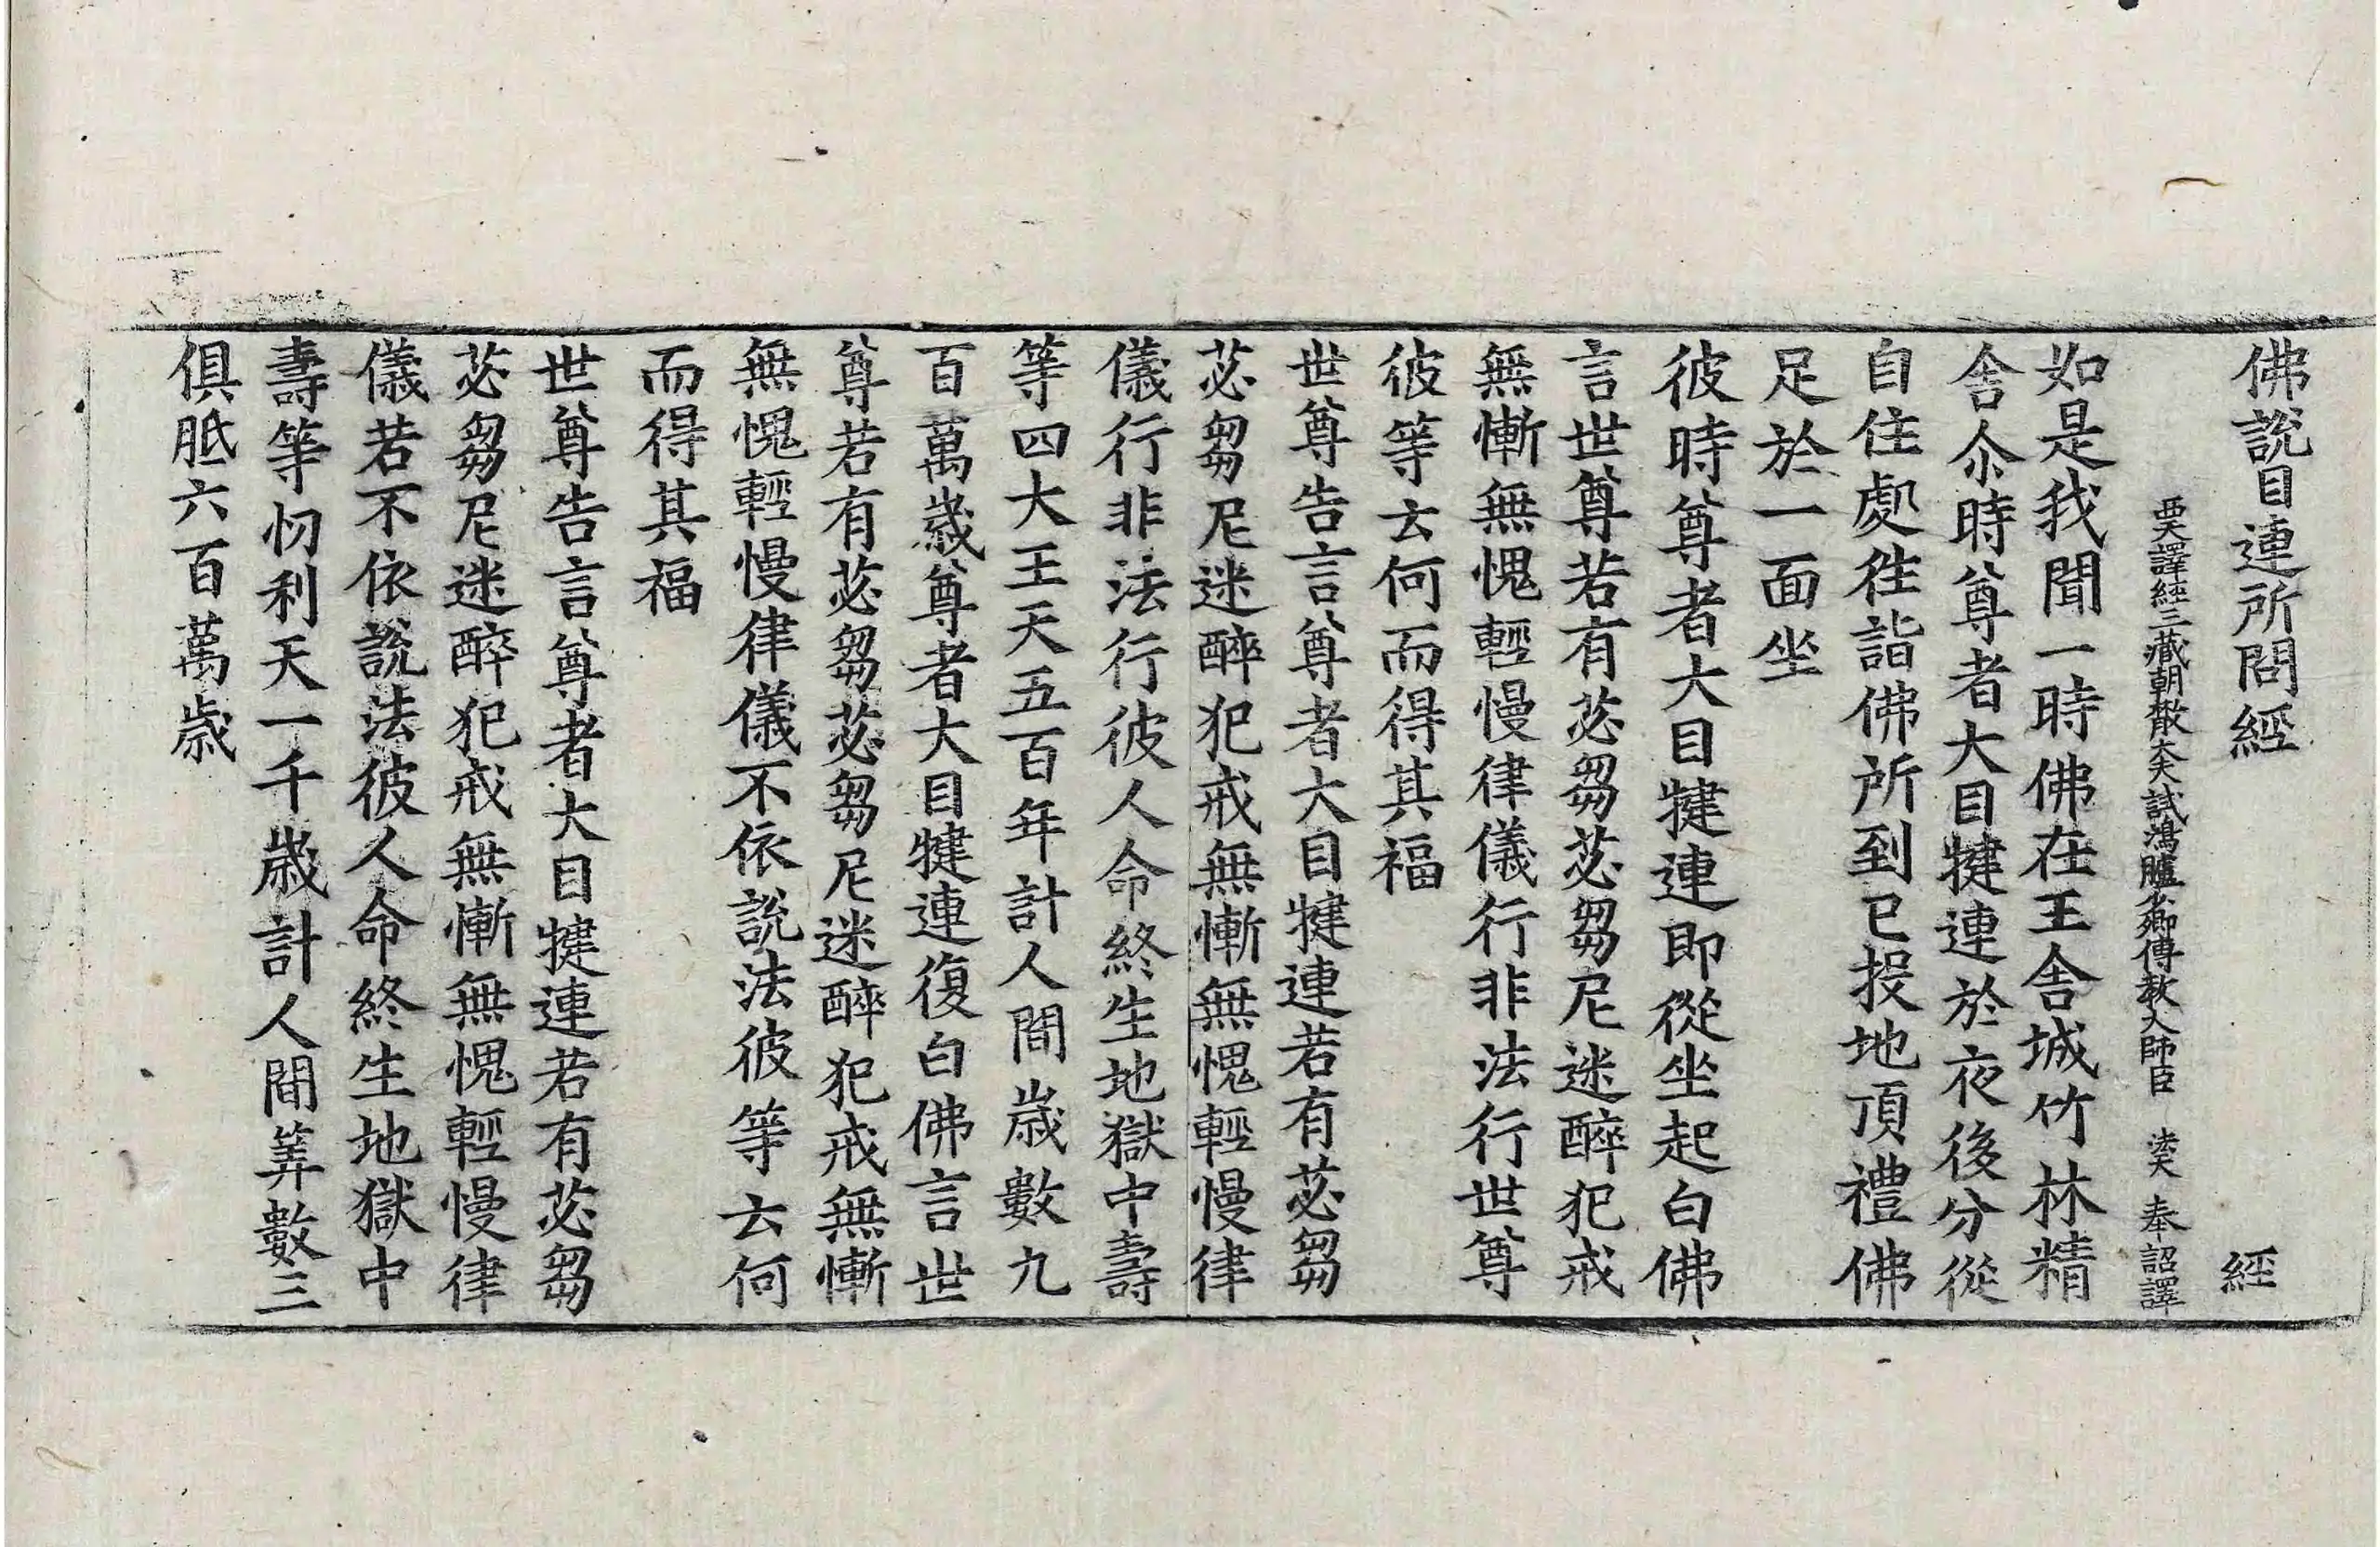 佛說目連所問經　經
西天譯經三藏朝散大夫試鴻臚少卿傳教大師臣　法天　奉詔譯
如是我聞一時佛在王舍城竹林精
舍尒時尊者大目犍連於夜後分從
自住處徃詣佛所到已投地頂禮佛
足於一面坐
彼時尊者大目犍連即從坐起白佛
言世尊若有苾芻苾芻尼迷醉犯戒
無慚無愧輕慢律儀行非法行世尊
彼等云何而得其福
世尊告言尊者大目犍連若有苾芻
苾芻尼迷醉犯戒無慚無愧輕慢律
儀行非法行彼人命終生地獄中壽
等四大王天五百年計人間歲數九
百萬歲尊者大目犍連復白佛言世
尊若有苾芻苾芻尼迷醉犯戒無慚
無愧輕慢律儀不依說法彼等云何
而得其福
世尊告言尊者大目犍連若有苾芻
苾芻尼迷醉犯戒無慚無愧輕慢律
儀若不依說法彼人命終生地獄中
壽等忉利天一千歲計人間筭數三
俱胝六百萬歲